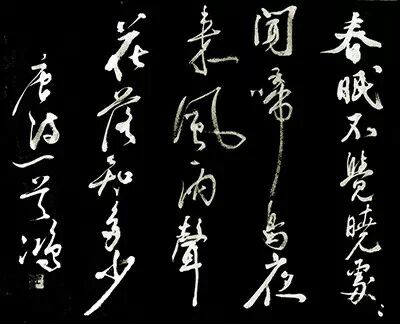 春眠不覺曉處〻
聞啼鳥夜
来風雨聲
花落知多少
唐诗一首